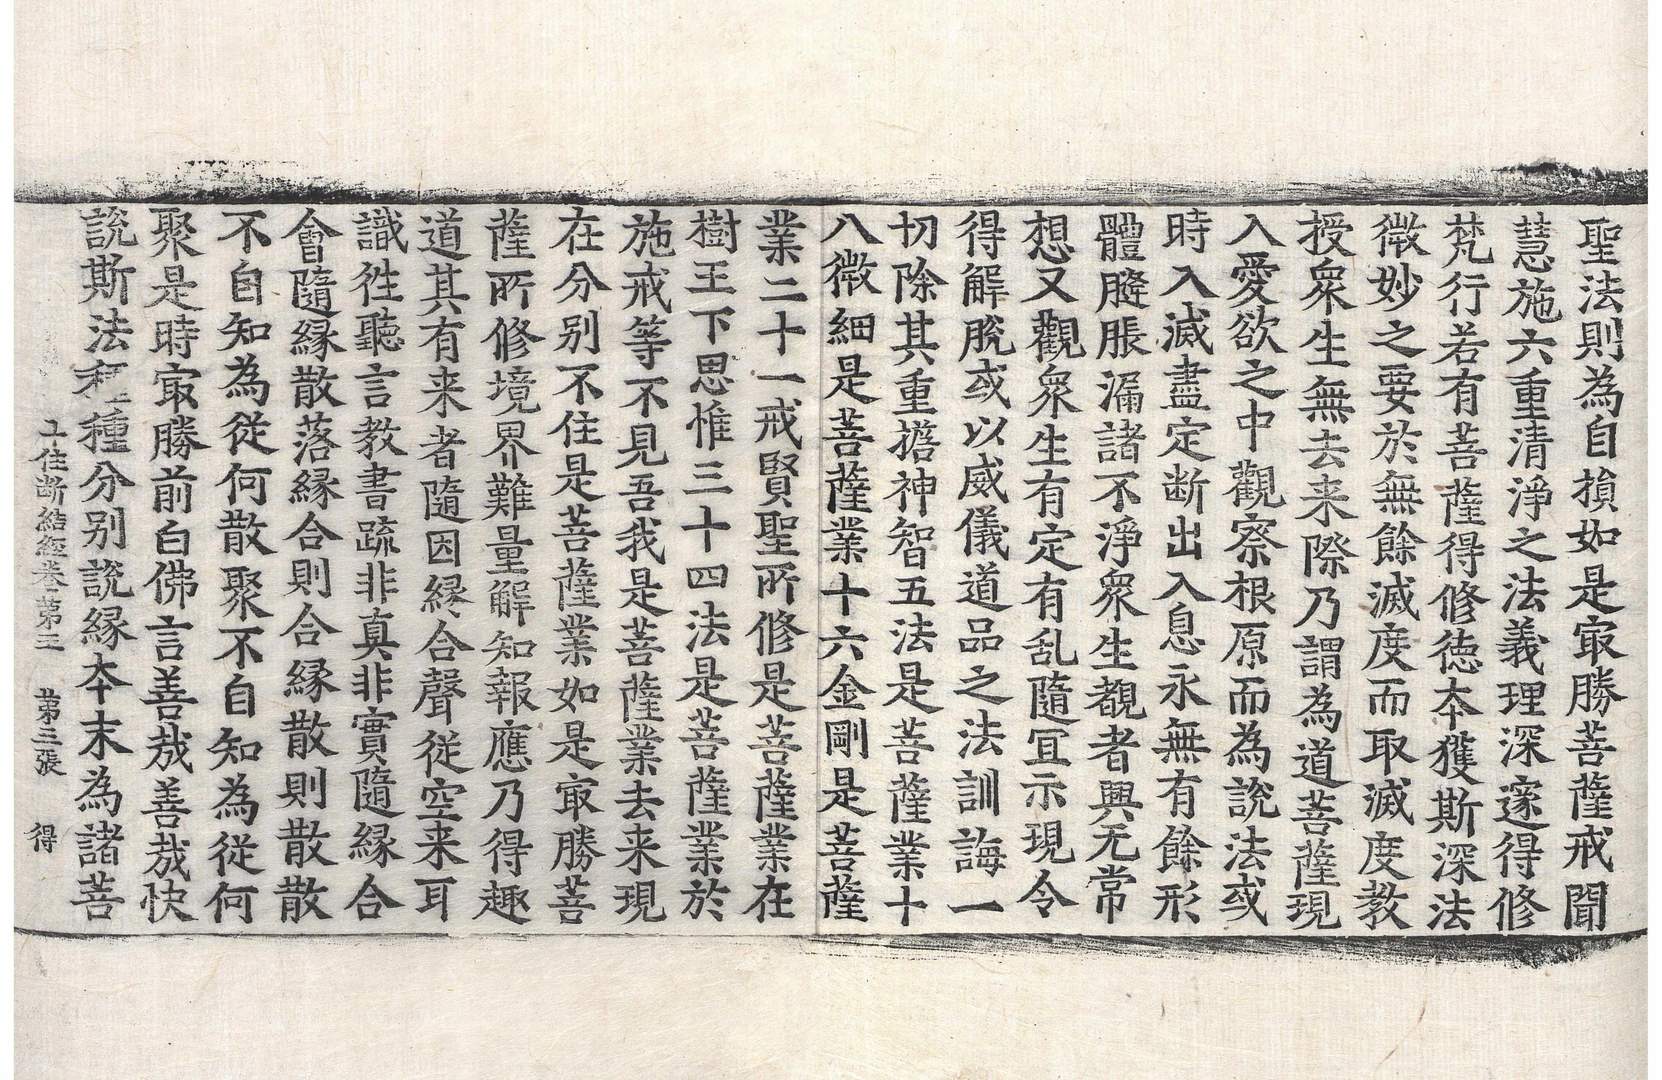 聖法則為自損如是㝡勝菩薩戒聞
慧施六重清淨之法義理深邃得修
梵行若有菩薩得修德本獲斯深法
微妙之要於無餘滅度而取滅度教
授衆生無去来際乃謂為道菩薩現
入愛欲之中觀察根原而為說法或
時入滅盡定断出入息永無有餘形
體膖脹漏諸不淨衆生覩者興无常
想又觀衆生有定有乱隨冝示現令
得解脫或以威儀道品之法訓誨一
切除其重擔神智五法是菩薩業十
八微細是菩薩業十六金剛是菩薩
業二十一戒賢聖所修是菩薩業在
樹王下思惟三十四法是菩薩業於
施戒等不見吾我是菩薩業去来現
在分別不住是菩薩業如是㝡勝菩
薩所修境界難量解知報應乃得趣
道其有来者隨因緣合聲從空来耳
識徃聽言教書䟽非真非實隨緣合
會隨緣散落緣合則合緣散則散散
不自知為從何散聚不自知為從何
聚是時㝡勝前白佛言善㢤善㢤快
說斯法種種分別說緣本末為諸菩
十住断結經卷第三　第三張　得